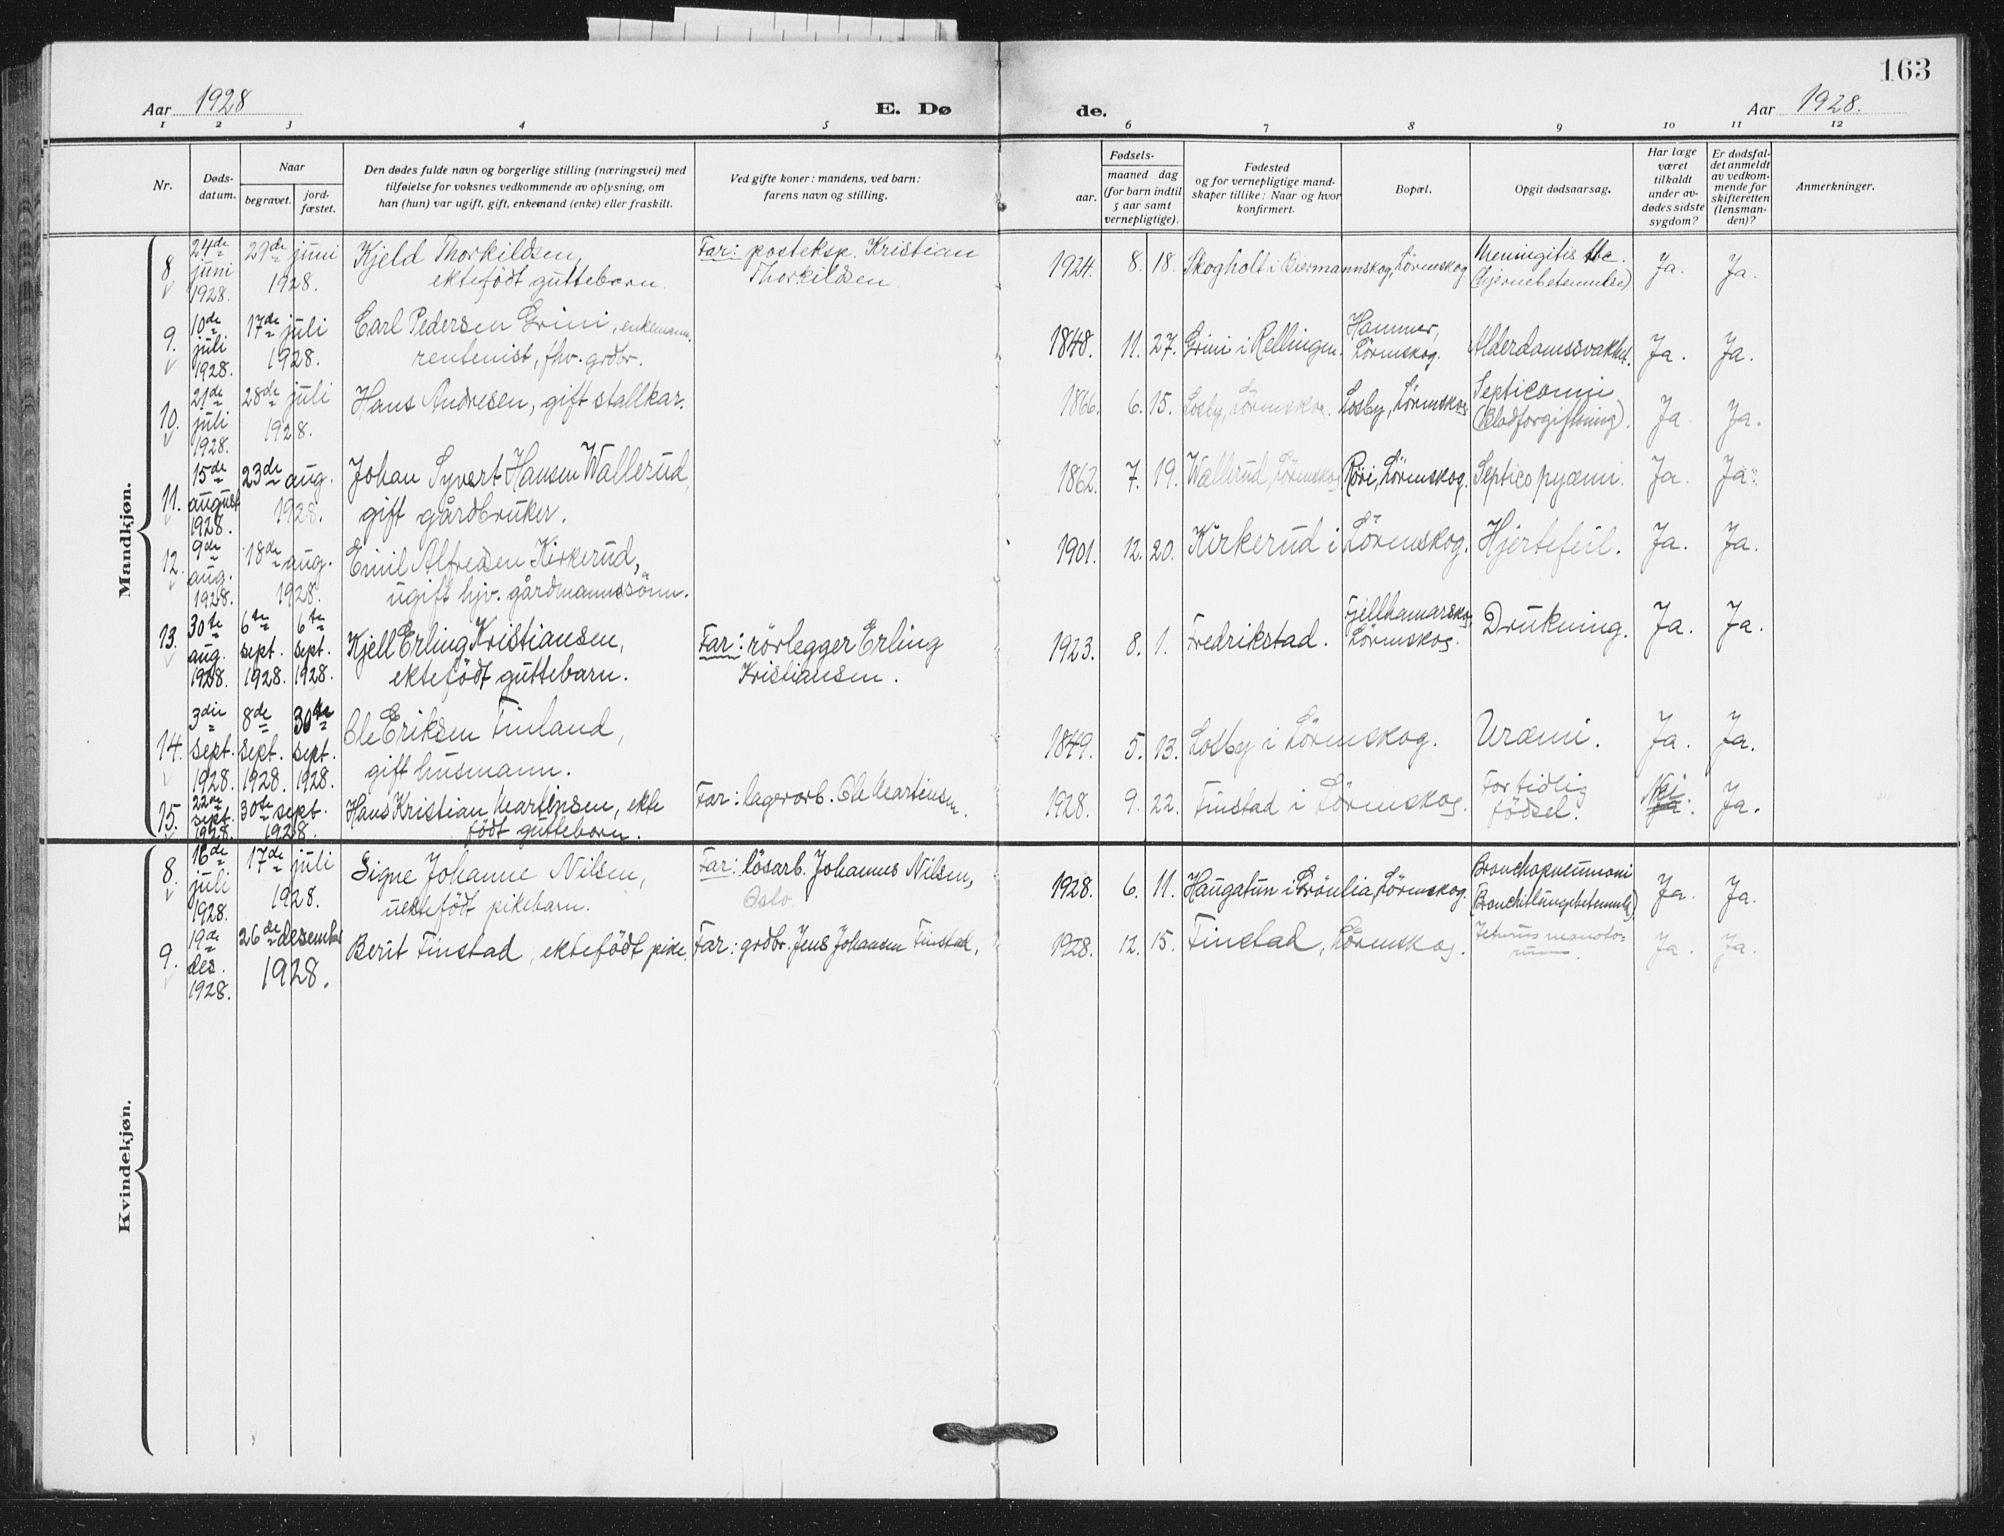 163
Aar 1928
E. Dø
de.
Aar 1928.
1 2 3 4 5 6 7 8 9 10 11 12
Nr.
Døds-
datum.
Naar
begravet.
jord-
fæstet.
Den dødes fulde navn og borgerlige stilling (næringsvei) med
tilføielse for voksnes vedkommende av oplysning, om
han (hun) var ugift, gift, enkemand (enke) eller fraskilt.
Ved gifte koner: mandens, ved barn:
farens navn og stilling.
Fødsels-
aar.
maaned dag
(for barn indtil
5 aar samt
vernepligtige).
Fødested
og for vernepligtige mand-
skaper tillike: Naar og hvor
konfirmert.
Bopæl.
Opgit dødsaarsag.
Har læge
været
tilkaldt
under av-
dødes sidste
sygdom?
Er dødsfal-
det anmeldt
av vedkom-
mende for
skifteretten
(lensman-
den)?
Anmerkninger.
Mandkjøn.
8 24de juni 1928. 29de juni 1928. Kjeld Thorkildsen, Far: posteksp. Kristian 1924. 8. 18. Skogholt i Biermannskog, Lörenskog Meningitis tbc. Ja. Ja.
ektefödt guttebarn. Thorkildsen. (hjernebetennelse)
9. 10de juli 1928. 17de juli 1928. Carl Pedersen Grini, enkemann. 1848. 11. 27. Grini i Rellingen. Hammer, Lörenskog. Alderdomssvakhet. Ja. Ja.
rentenist, fhv. grdbr.
10. 21de juli 1928. 28de juli 1928. Hans Andresen, gift stallkar. 1866. 6. 15. Losby, Lörenskog. Losby, Lörenskog. Septicæmi Ja Ja.
(Blodforgiftning).
11. 15de august 1928. 23de aug. 1928. Johan Syvert Hansen Wallerud, 1862. 7. 19. Wallerud, Lörenskog Röri, Lörenskog. Septico pyæmi. Ja. Ja.
gift gårdbruker.
12. 9de aug. 1928. 18de aug. 1928. Emil Alfredsen Kirkerud, 1901. 12. 20. Kirkerud i Lörenskog. Hjertefeil. Ja. Ja.
ugift hjv. gårdmannssönn.
13. 30te aug. 1928. 6te sept. 1928. 6te sept. 1928. Kjell Erling Kristiansen, Far: rörlegger Erling 1923. 8. 1. Fredrikstad. Fjellhamarskog, Lörenskog. Drukning. Ja. Ja.
ektefödt guttebarn. Kristiansen.
14. 3die sept. 1928 8de sept. 1928. 30te sept. 1928. Ole Eriksen Finland, 1849. 5. 13. Losby i Lörenskog. Uræmi. Ja. Ja.
gift husmann.
15. 22de sept. 1928. 30te sept. 1928. Hans Kristian Martinsen, ekte Far: lagerarb. Ole Martinsen. 1928. 9. 22. Finstad i Lörenskog. For tidlig Nei. Ja.
födt guttebarn. födsel.
Kvindekjøn.
8. 16de juli 1928. 17de juli 1928. Signe Johanne Nilsen, Far: lösarb. Johannes Nilsen, 1928. 6. 11. Haugatun i Grönlia, Lörenskog. Bronchopneumoni Ja. Ja.
uektefödt pikebarn. Oslo.
9. 19de des. 1928. 26de desember 1928. Berit Finstad, ektefödt pike. Far: grdbr. Jens Johansen Finstad, 1928. 12. 15. Finstad, Lörenskog. Ja. Ja.